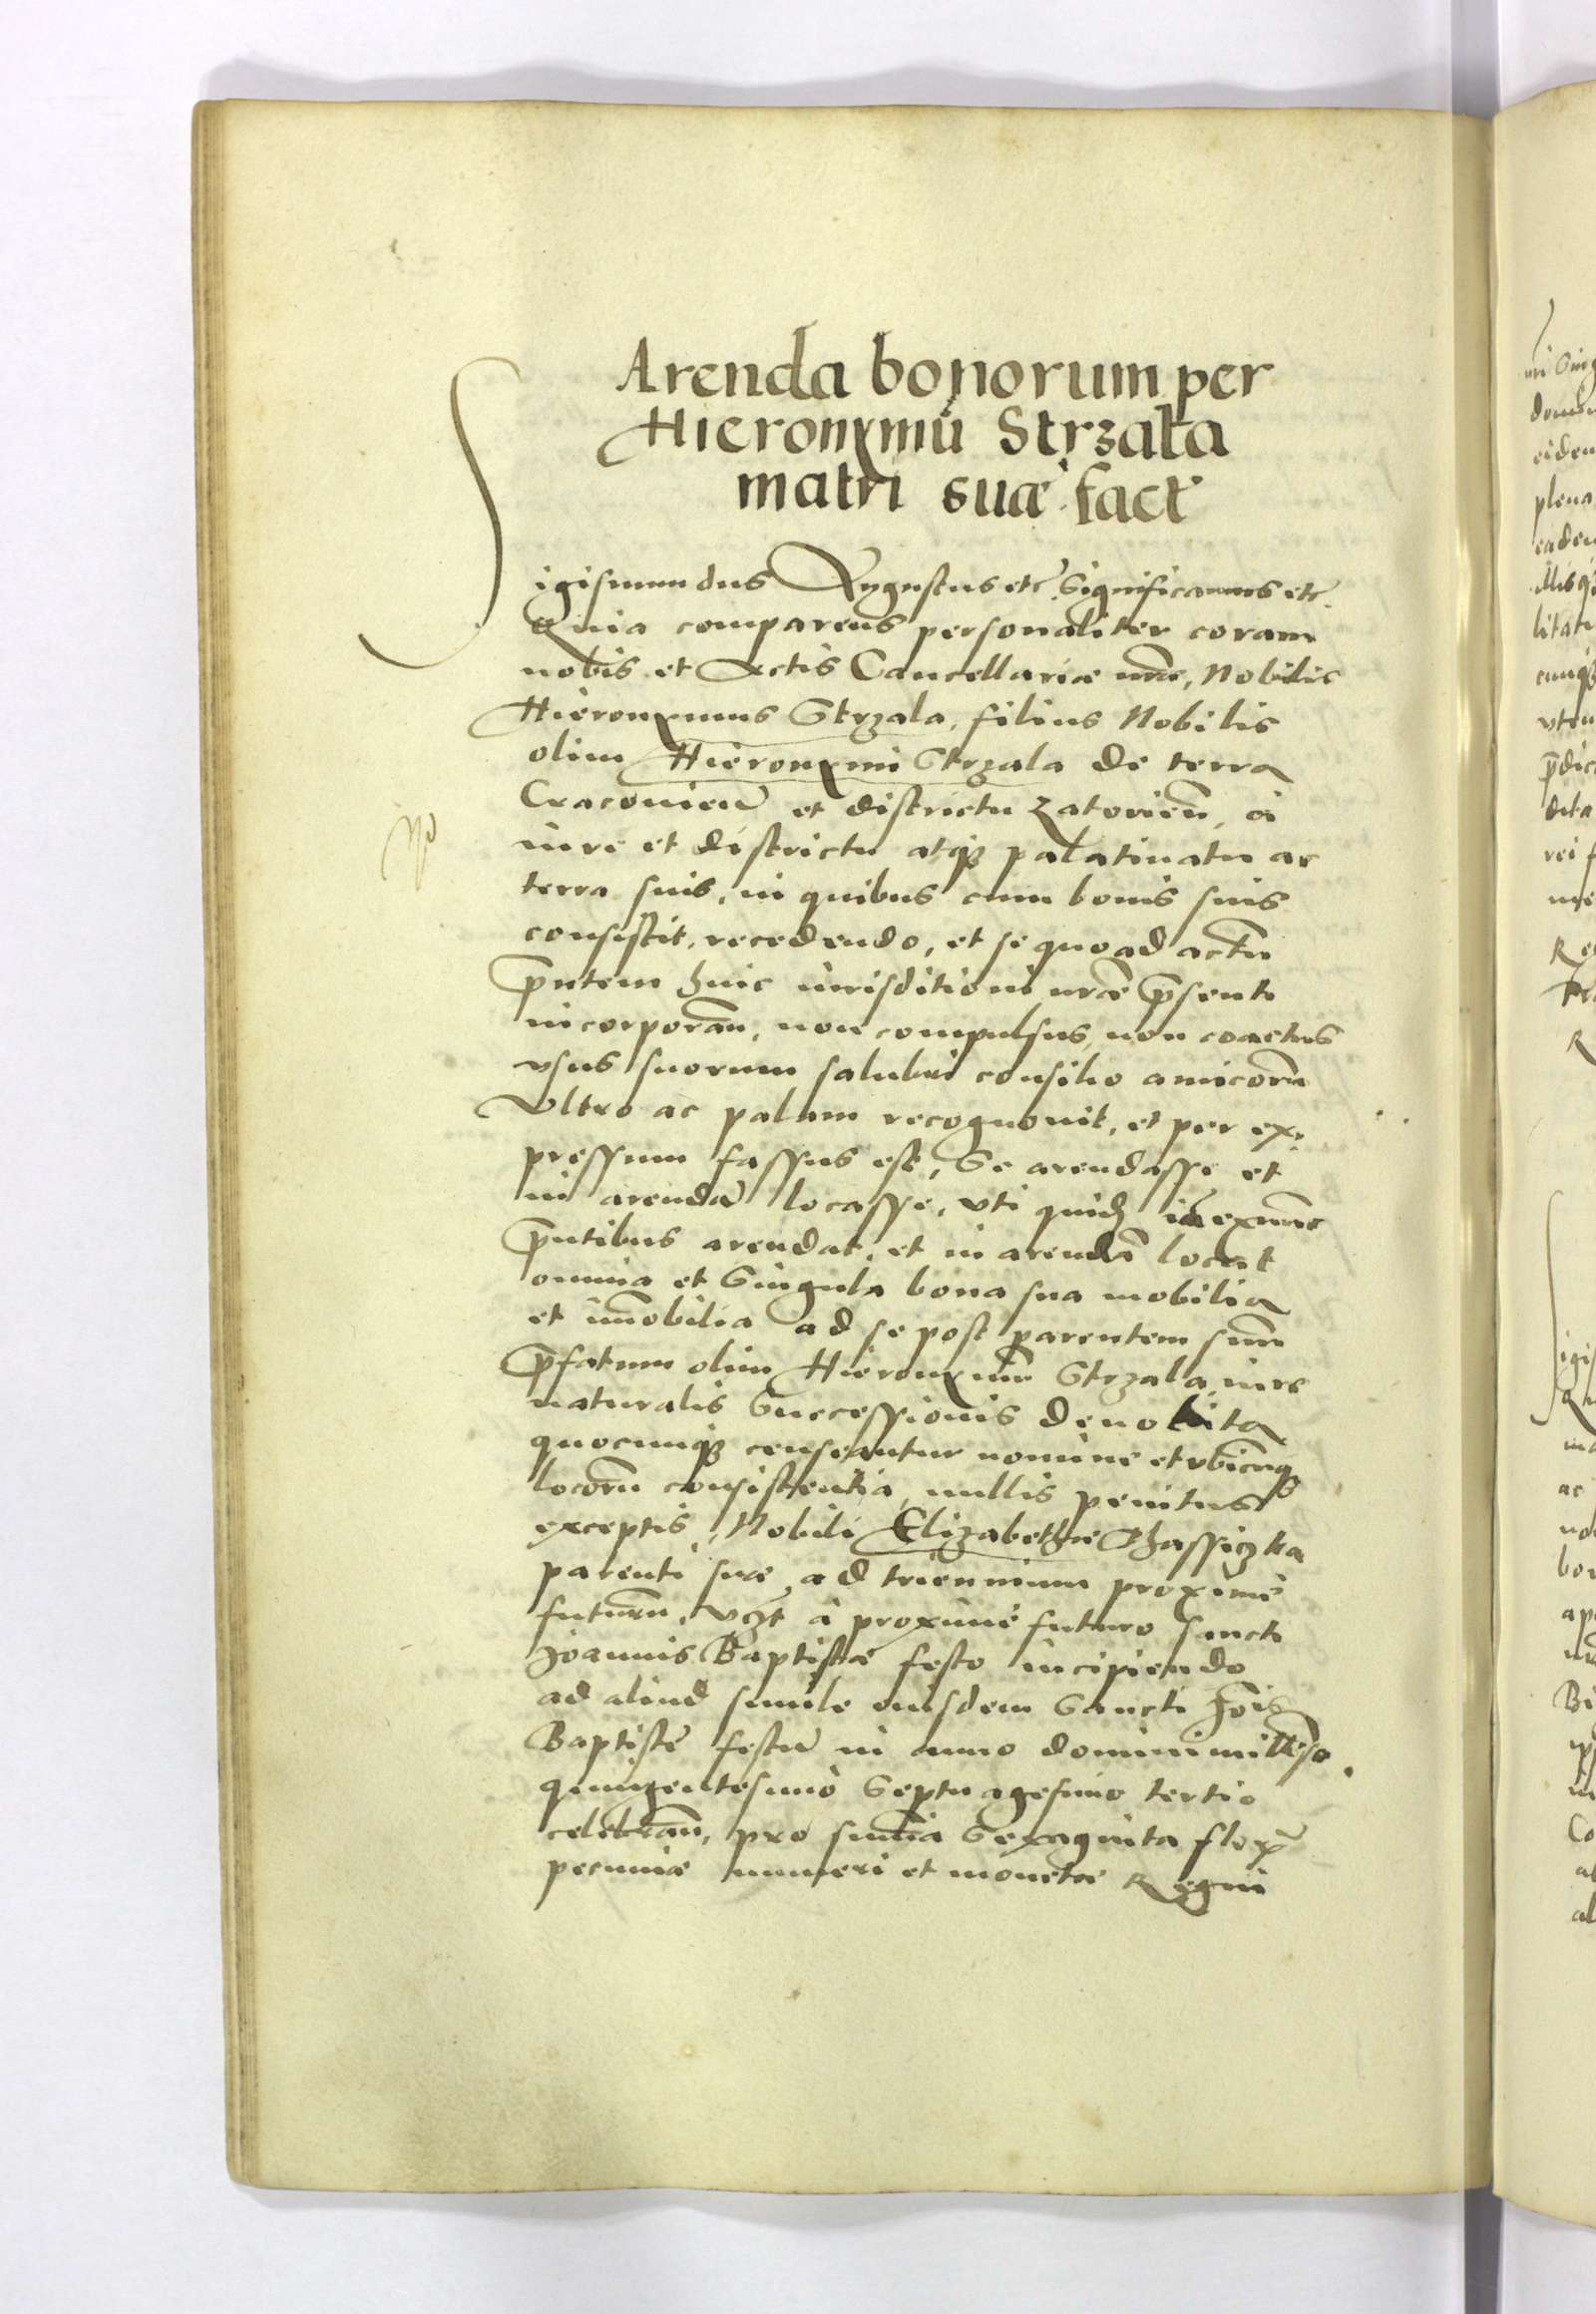 Arenda bonorum per
Hieronymū Strzala
matri suæ fact
Sigismundus Augustus etc̃ Significamus etc̃
Quia comparens personaliter coram
nobis et Actis Cancellariæ nr̃æ, Nobilis
Hieronymus Strzala, filius Nobilis
olim Hieronymi Strzala de terra
Cracovien̄ et districtu Zatorien̄, a
iure et districtu atq̃ palatinatu ac
terra suis, in quibus cum bonis suis
consistit, recedendo, et se quo ad actū
pn̄tem huic iurisditioni nr̃æ p̄senti
incorporan̄, non compulsus, non coactus
usus suorum salubri consilio amicorū
Ultro ac palam recognovit, et per ex-
pressum fassus est, Se arendasse et
in arendā locasse, uti quidē exnunc
pn̄tibus arendat, et in arendā locat
omnia et Singula bona sua mobilia
et im̄obilia ad se post parentem suū
p̄fatum olim Hieronymū Strzala iure
naturalis Successionis devoluta
quocunq̃ censeantur nomine et ubicūq̃
locorū consistentia, nullis penitus
exceptis, Nobili Elizabethæ
parenti suæ, ad triennium proximè
futurū, vz̃t à proximè futuro sancti
Joannis Baptistæ festo incipiendo
ad aliud simile eiusdem Sancti Jōis
Baptistæ festū in anno domini millẽso
quingentesimo Septuagesimo tertio
celebran̄, pro sum̄a Sexaginta flor̃
pecuniæ numeri et monetæ Regni